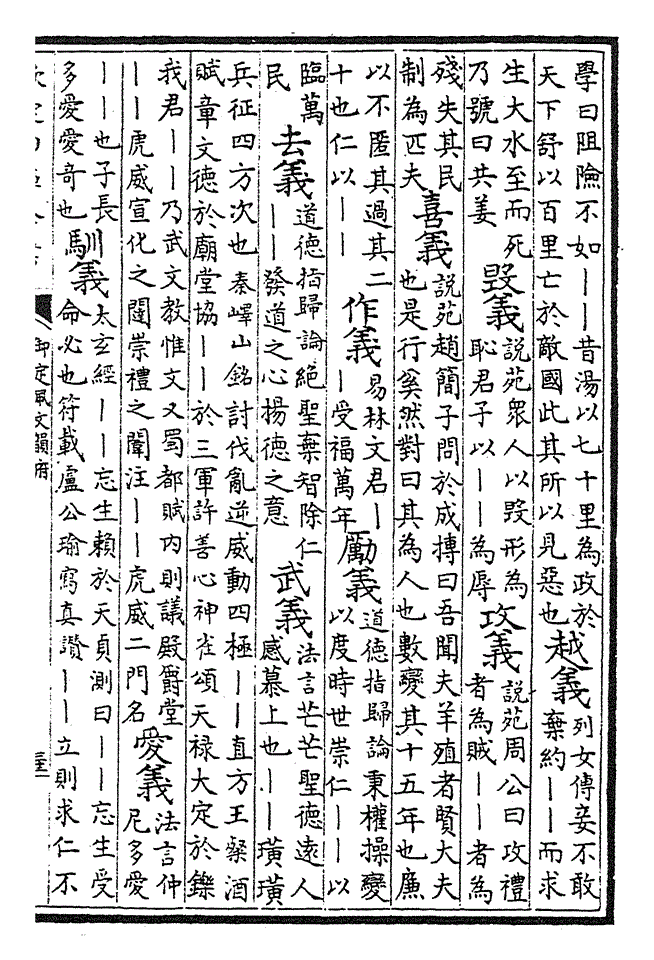 學曰阻險不如——昔湯以七十里為政於
天下舒以百里亡於敵國此其所以見惡也
越義
列女傳妾不敢
棄約——而求
生大水至而死
乃號曰共姜
毀義
說苑衆人以毀形為
恥君子以——為辱
攻義
說苑周公曰攻禮
者為賊——者為
殘失其民
制為匹夫
喜義
說苑趙簡子問於成摶曰吾聞夫羊殖者賢大夫
也是行奚然對曰其為人也數變其十五年也廉
以不匿其過其二
十也仁以——
作義
易林文君—
—受福萬年
勵義
道德指歸論秉權操變
以度時世崇仁——以
臨萬
民
去義
道德指歸論絕聖棄智除仁
——發道之心揚德之意
武義
法言芒芒聖德遠人
感慕上也——璜璜
兵征四方次也秦嶧山銘討伐亂逆威動四極——直方王粲酒
賦章文德於廟堂協——於三軍許善心神雀頌天禄大定於鑠
我君——乃武文教惟文又蜀都賦内則議殿爵堂
——虎威宣化之闥崇禮之闈注——虎威二門名
愛義
法言仲
尼多愛
——也子長
多愛愛奇也
馴義
太玄經——忘生賴於天貞測曰——忘生受
命必也符載盧公瑜寫真讚——立則求仁不
御定佩文韻府